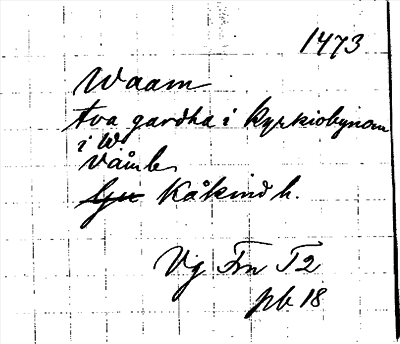 1473
Waam
tva gardha i kyrkiobynom
i W
Våmb
Kåkind h.
Vg Fm T2
pb 18